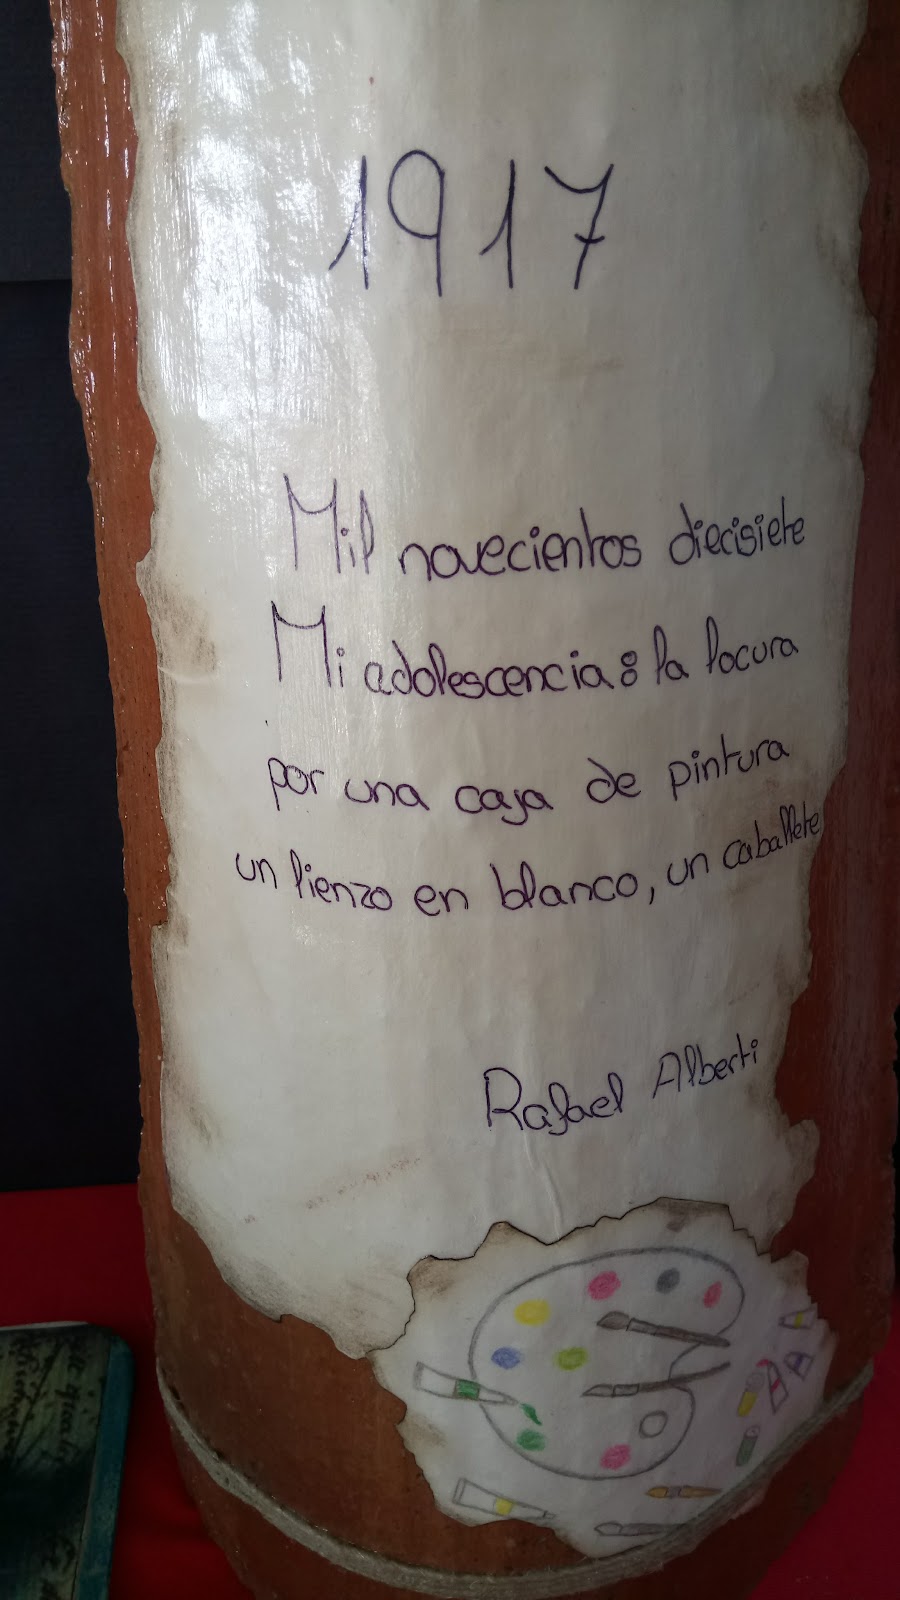 1917
Mil novecientos diecisiete
Mi adolescencia: la locura
por una caja de pintura
un lienzo en blanco, un caballete
Rafael Alberti